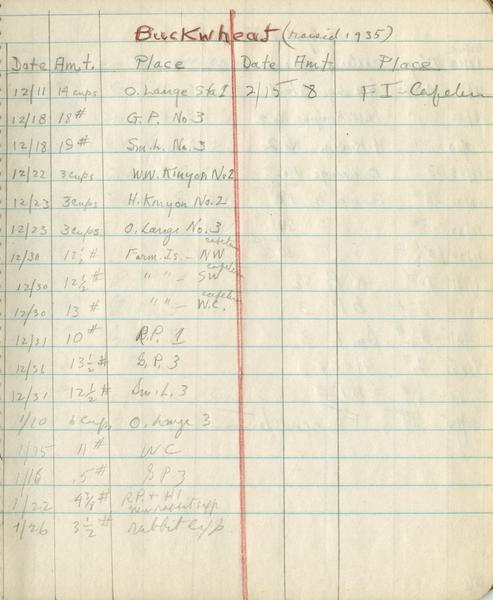 Buckwheat (raised 1935)
Date Amt. Place Date Amt Place
12/11 14 cups O. Lange Sta 1 2/15 8 F I - Cafeteria
12/18 18# G.P. No 3
12/18 18# Sm. L. No. 3
12/22 3 cups W.W. Kinyon No. 2
12/23 3 cups H. Kinyon No. 2
12/23 3 cups O. Lange No. 3
12/30 12 1/2 # Farm. Is. - NW cafeteria
12/30 12 1/2 # " " - SW cafeteria
12/30 13 # " " - W.C. cafeteria
12/31 10 # R.P. 1
12/31 13 1/2 # G.P. 3
12/31 12 1/2 # Sm. L. 3
1/10 6 cups O. Lange 3
1/15 11 # WC
1/16 .5 # G P 3
1/22 # R.P. + H1
new rabbit exp.
1/26 3 1/2 # rabbit exp.